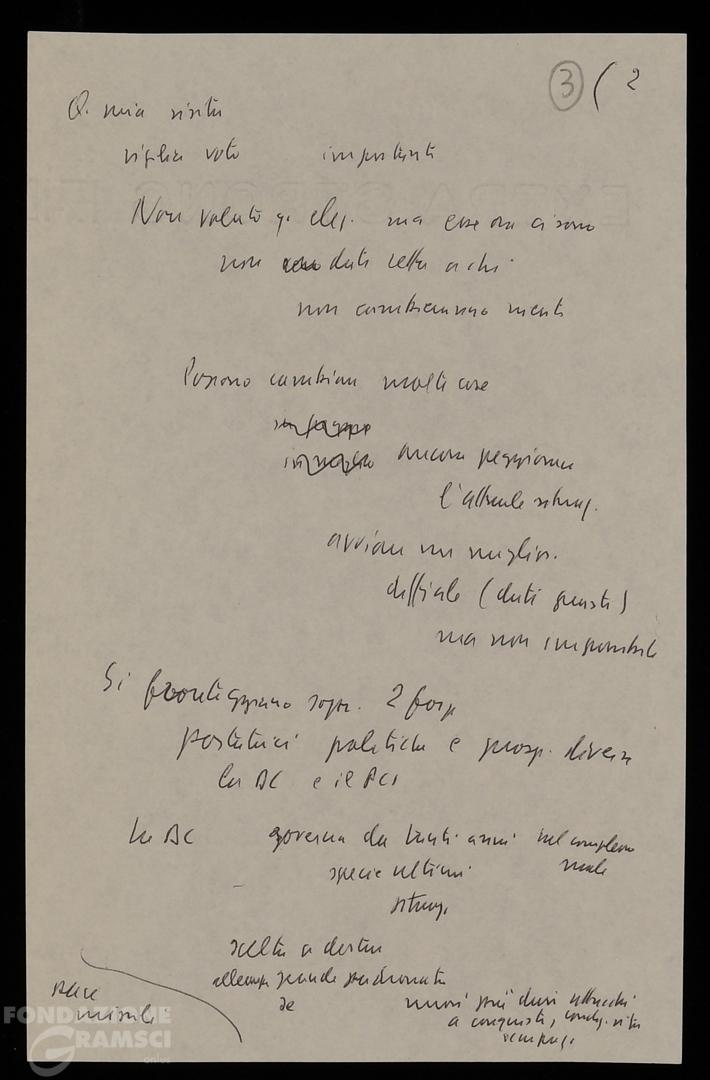 3 ( 2
Q. mia visita
vigilia voto importante
Non voluto q. elez. ma esse ora ci sono
non dati retta a chi
non cambieranno niente
Possono cambiare molte cose
ancora peggiorare
l'attuale situaz.
avviare un miglior.
difficile (dati guasti)
ma non impossibile
Si fronteggiano sopr. 2 forze
portatrici politiche e prosp. diverse
la DC e il PCI
La DC governa da tanti anni nel complesso
male
specie ultimi
situaz.
scelta a destra
alleanza grande padronato
se nuovi più duri attacchi
a conquiste, condiz. vita
FONDAZIONE
GRAMSCI
onlus